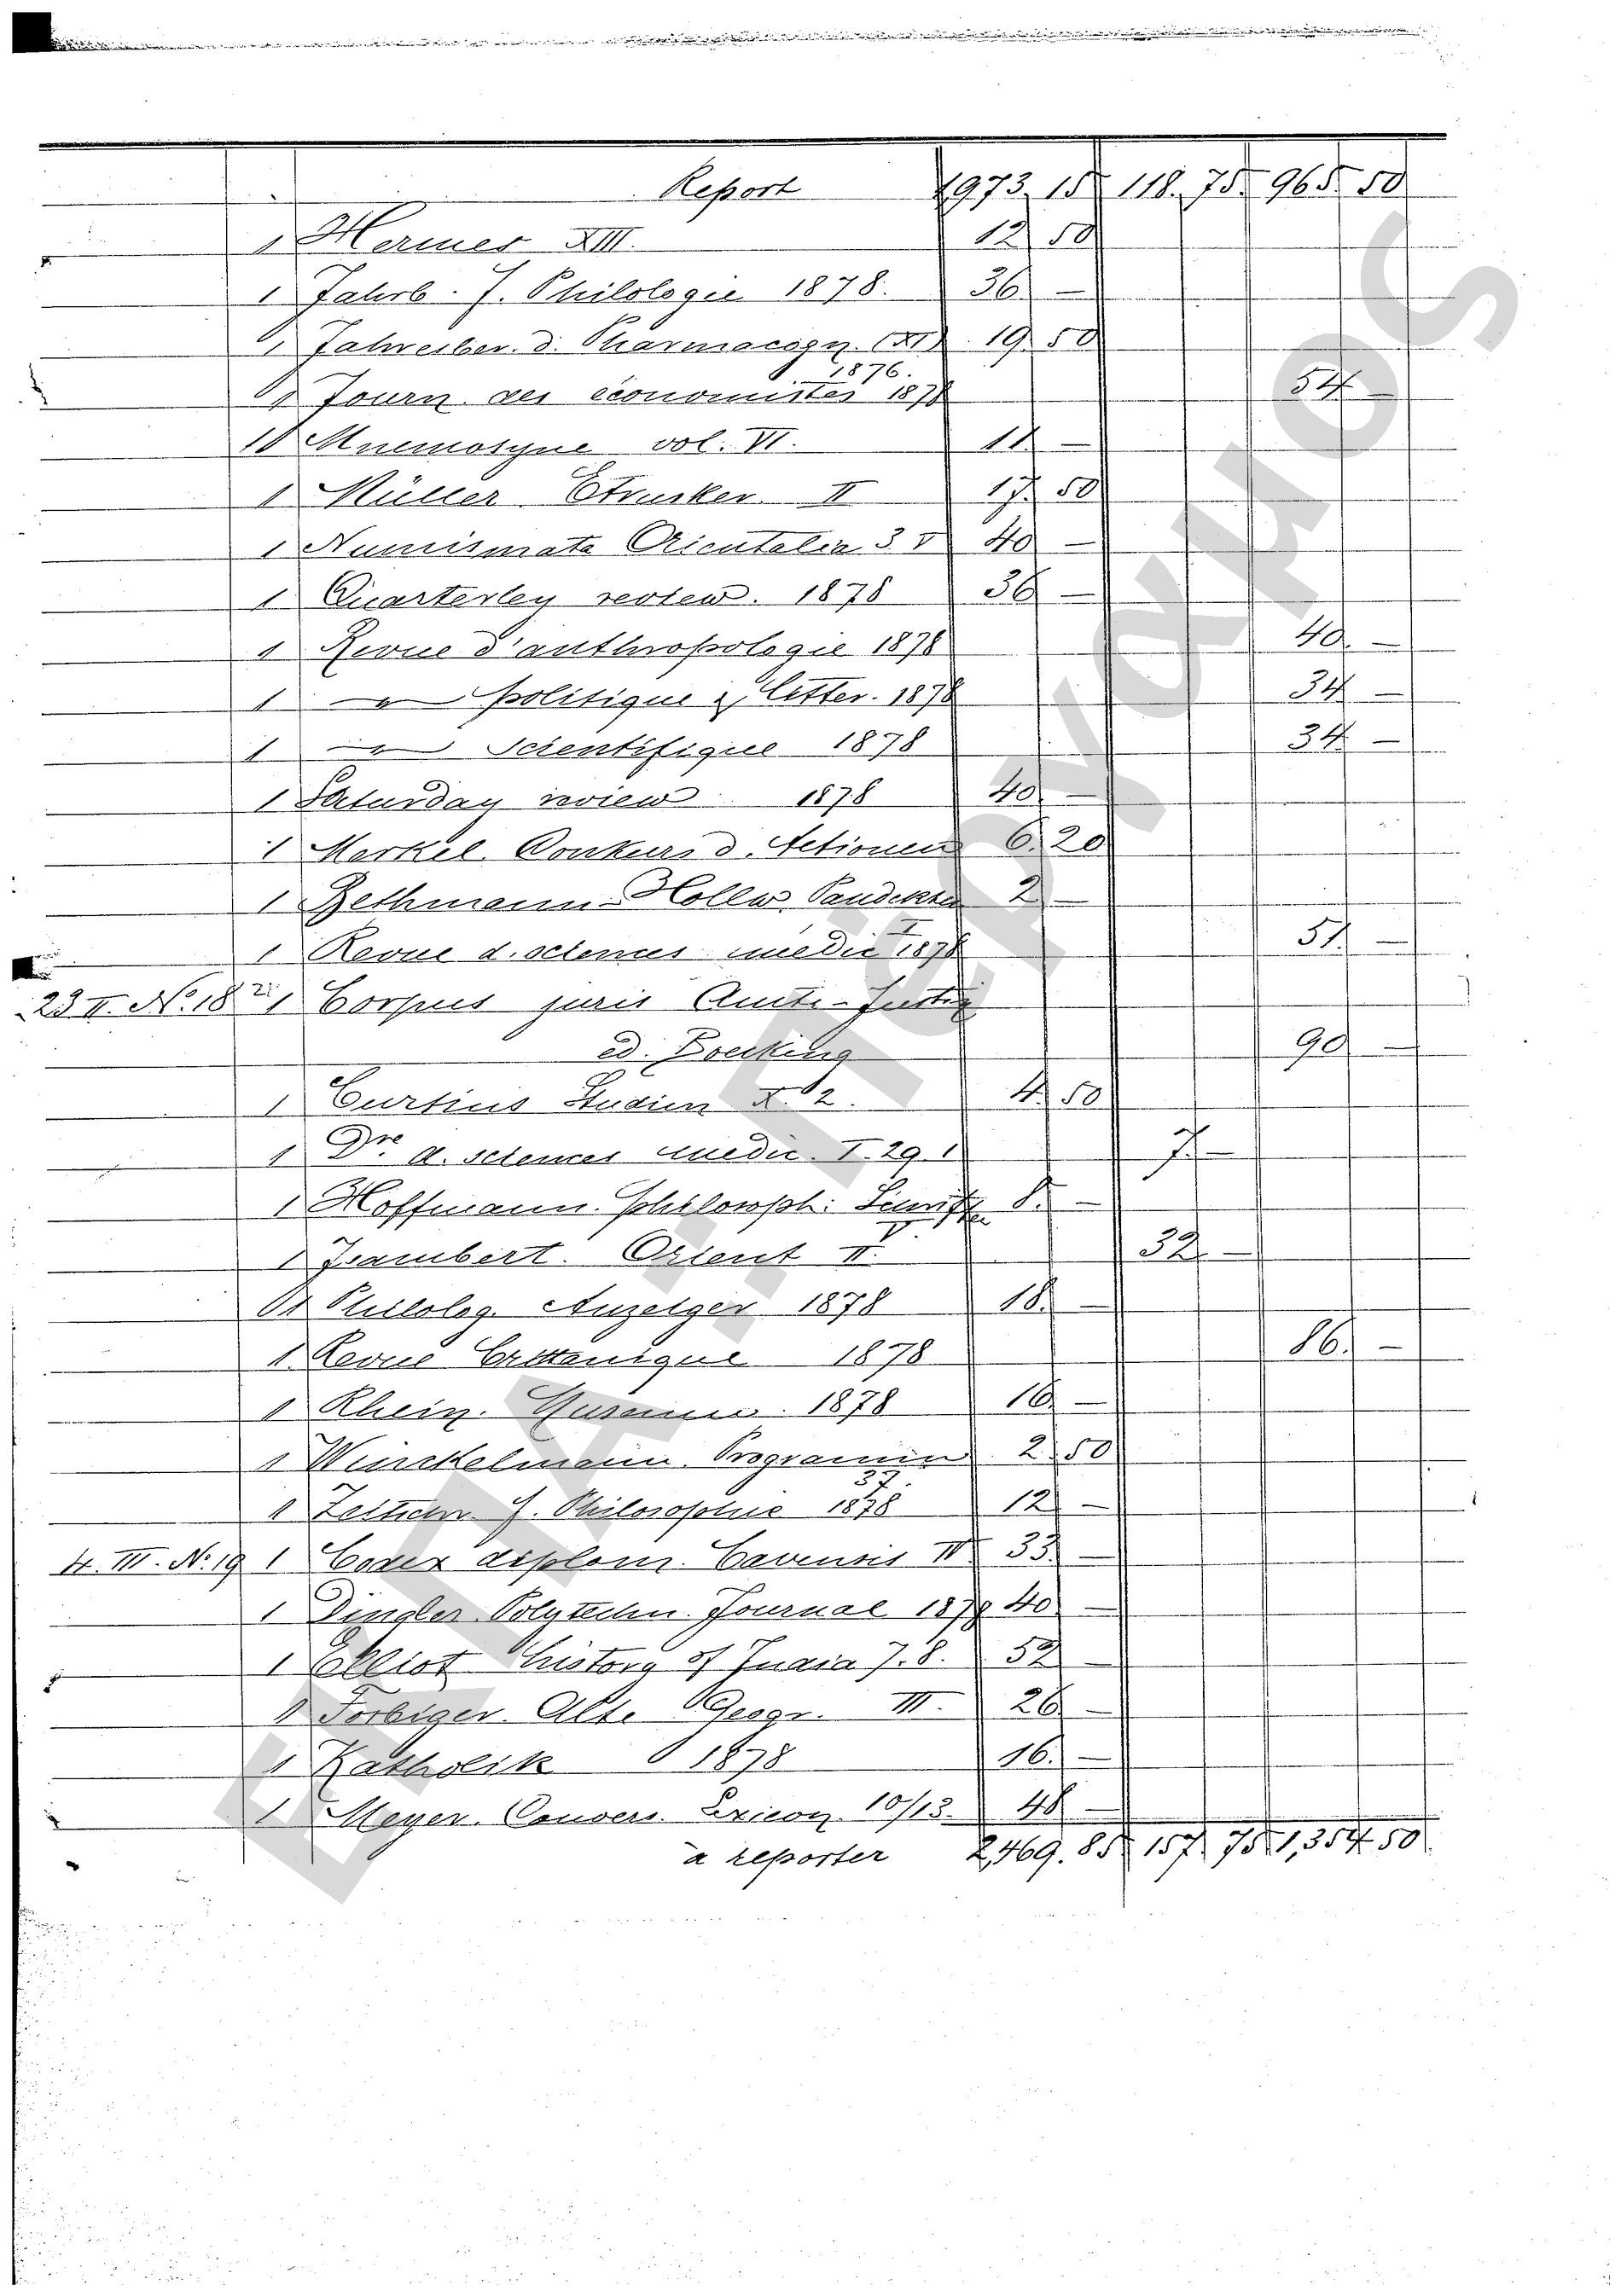 Report 1973. 15 118. 75 965. 50
1 Hermes XIII. 12 50
1 Jahrb. f. Philologie 1878. 36. —
1 Jahresber. d. Pharmacogn. (XI) 19. 50
1876.
1 Journ des économistes 1878 54 —
1 Mnemosyne vol. VI. 11. —
1 Müller Etrusker II 17. 50
1 Numismata Orientalia 3. 40 —
1 Quarterley review. 1878 36 —
1 Revue d'anthropologie 1878 40. —
1 — politique & litter. 1878 34 —
1 — Scientifique 1878 34. —
1 Saturday review 1878 40. —
1 Merkel Konkurs d. Actionen 6. 20
1 Bethmann-Hollw. Pandekten 2 —
1 Revue d. sciences medic 1878 51. —
23 II. No. 18 1 Corpus juris Ante-Justin
ed. Boecking 90 —
1 Curtius Studien X. 2. 4. 50
1 Dre d. sciences medic. I. 29. 1 7. —
1 Hoffmann. philosoph. Schriften 8. —
1 Isambert. Orient II. 32. —
1 Philolog. Anzeiger 1878 18. —
1 Revue Brittanique 1878 86. —
1 Rhein. Museum. 1878 16 —
1 Winckelmann. Programm 2. 50
37.
1 Zeitschr. f. Philosophie 1878 12 —
4. III. No. 19 1 Codex diplom. Cavensis IV 33. —
1 Dingler Polytechn. Journal 1879 40 —
1 Elliot history of India 7. 8. 52 —
1 Forbiger. Alte Geogr. III. 26 —
1 Katholik 1878 16. —
1 Meyer. Convers. Lexicon 10/13. 48 —
à reporter 2,469. 85 157. 75 1,354 50